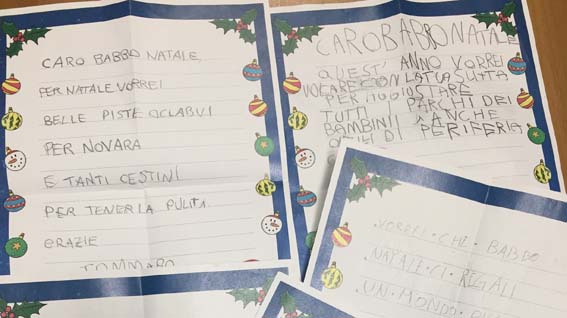 CARO BABBO NATALE,
PER NATALE VORREI
BELLE PISTE CICLABILI
PER NOVARA
E TANTI CESTINI
PER TENERLA PULITA.
GRAZIE
TOMMASO
CARO BABBO NATALE
QUEST' ANNO VORREI
CON LA TUA SLITTA
PER AGGIUSTARE
TUTTI PARCHI DEI
BAMBINI ANCHE
DI PERIFERIA
VORREI · CHE · BABBO
NATALE · CI · REGALI
UN · MONDO